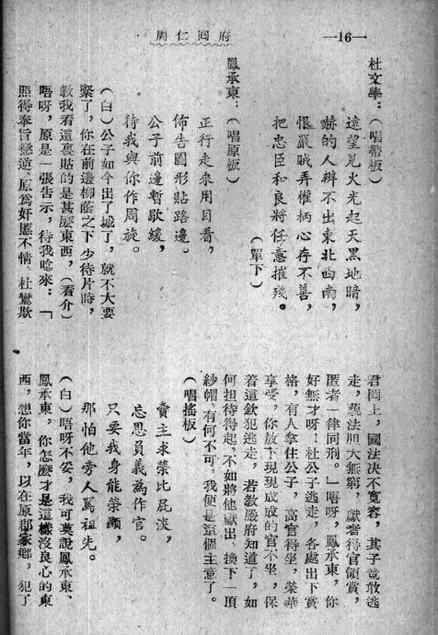 周仁囘府
—16—
杜文學：（唱帶板）
遠望見火光起天黑地暗，
嚇的人辨不出東北西南，
恨嚴賊弄權柄心存不善，
把忠臣和良將任意摧殘。
（單下）
鳳承東：（唱原板）
正行走来用目看，
佈告圖形貼路邊。
公子前邊暫歇緩，
待我與你作周旋。
（白）公子如今出了城了，就不大要
緊了，你在前邊柳蔭之下少待片時，
教我看這裏貼的是甚麼東西，（看介）
唔呀，原是一張告示，待我唸來：「
照得奉旨 逆，原爲奸 不情、杜鸞欺
君罔上，國法决不寬容，其子竟敢逃
走，藐法胆大無窮，獻者得官領賞，
匿者一律同刑。」唔呀，鳳承東，你
好無才呀！杜公子逃走，各處出下賞
格，有人拿住公子，高官得坐，榮華
享受，你放下現現成成的官不坐，保
着這欽犯逃走，若教嚴府知道了，如
何担待得起，不如將他獻出、換下一頂
紗帽，有何不可，我便是這個主意了。
（唱搖板）
賣主求榮比屁淡，
忘恩負義為作官。
只要我身能榮顯，
那怕他旁人罵祖先。
（白）唔呀不妥，我可莫說鳳承東、
鳳承東，你怎麼才是這樣沒良心的東
西，想你當年，以在原郡家鄉，犯了